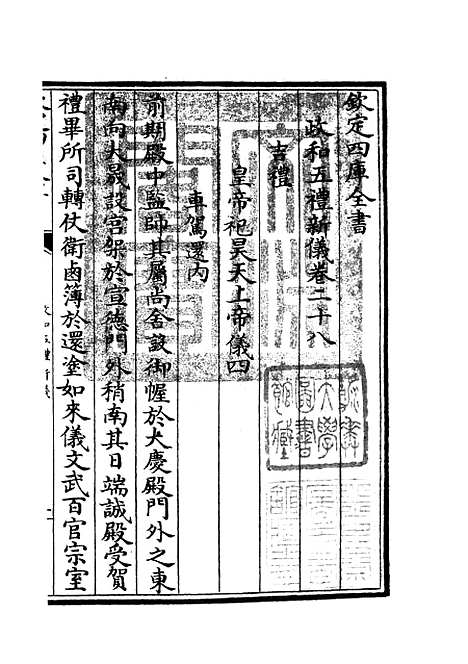 欽定四庫全書
政和五禮新儀卷二十八
吉禮
皇帝祀昊天上帝儀四
車駕還内
前期殿中監帥其屬尚舍設御幄於大慶殿門外之東
南向大晟設宫架於宣德門外稍南其日端誠殿受賀
禮畢所司轉仗衛鹵簿於還塗如來儀文武百官宗室
政和五禮新儀